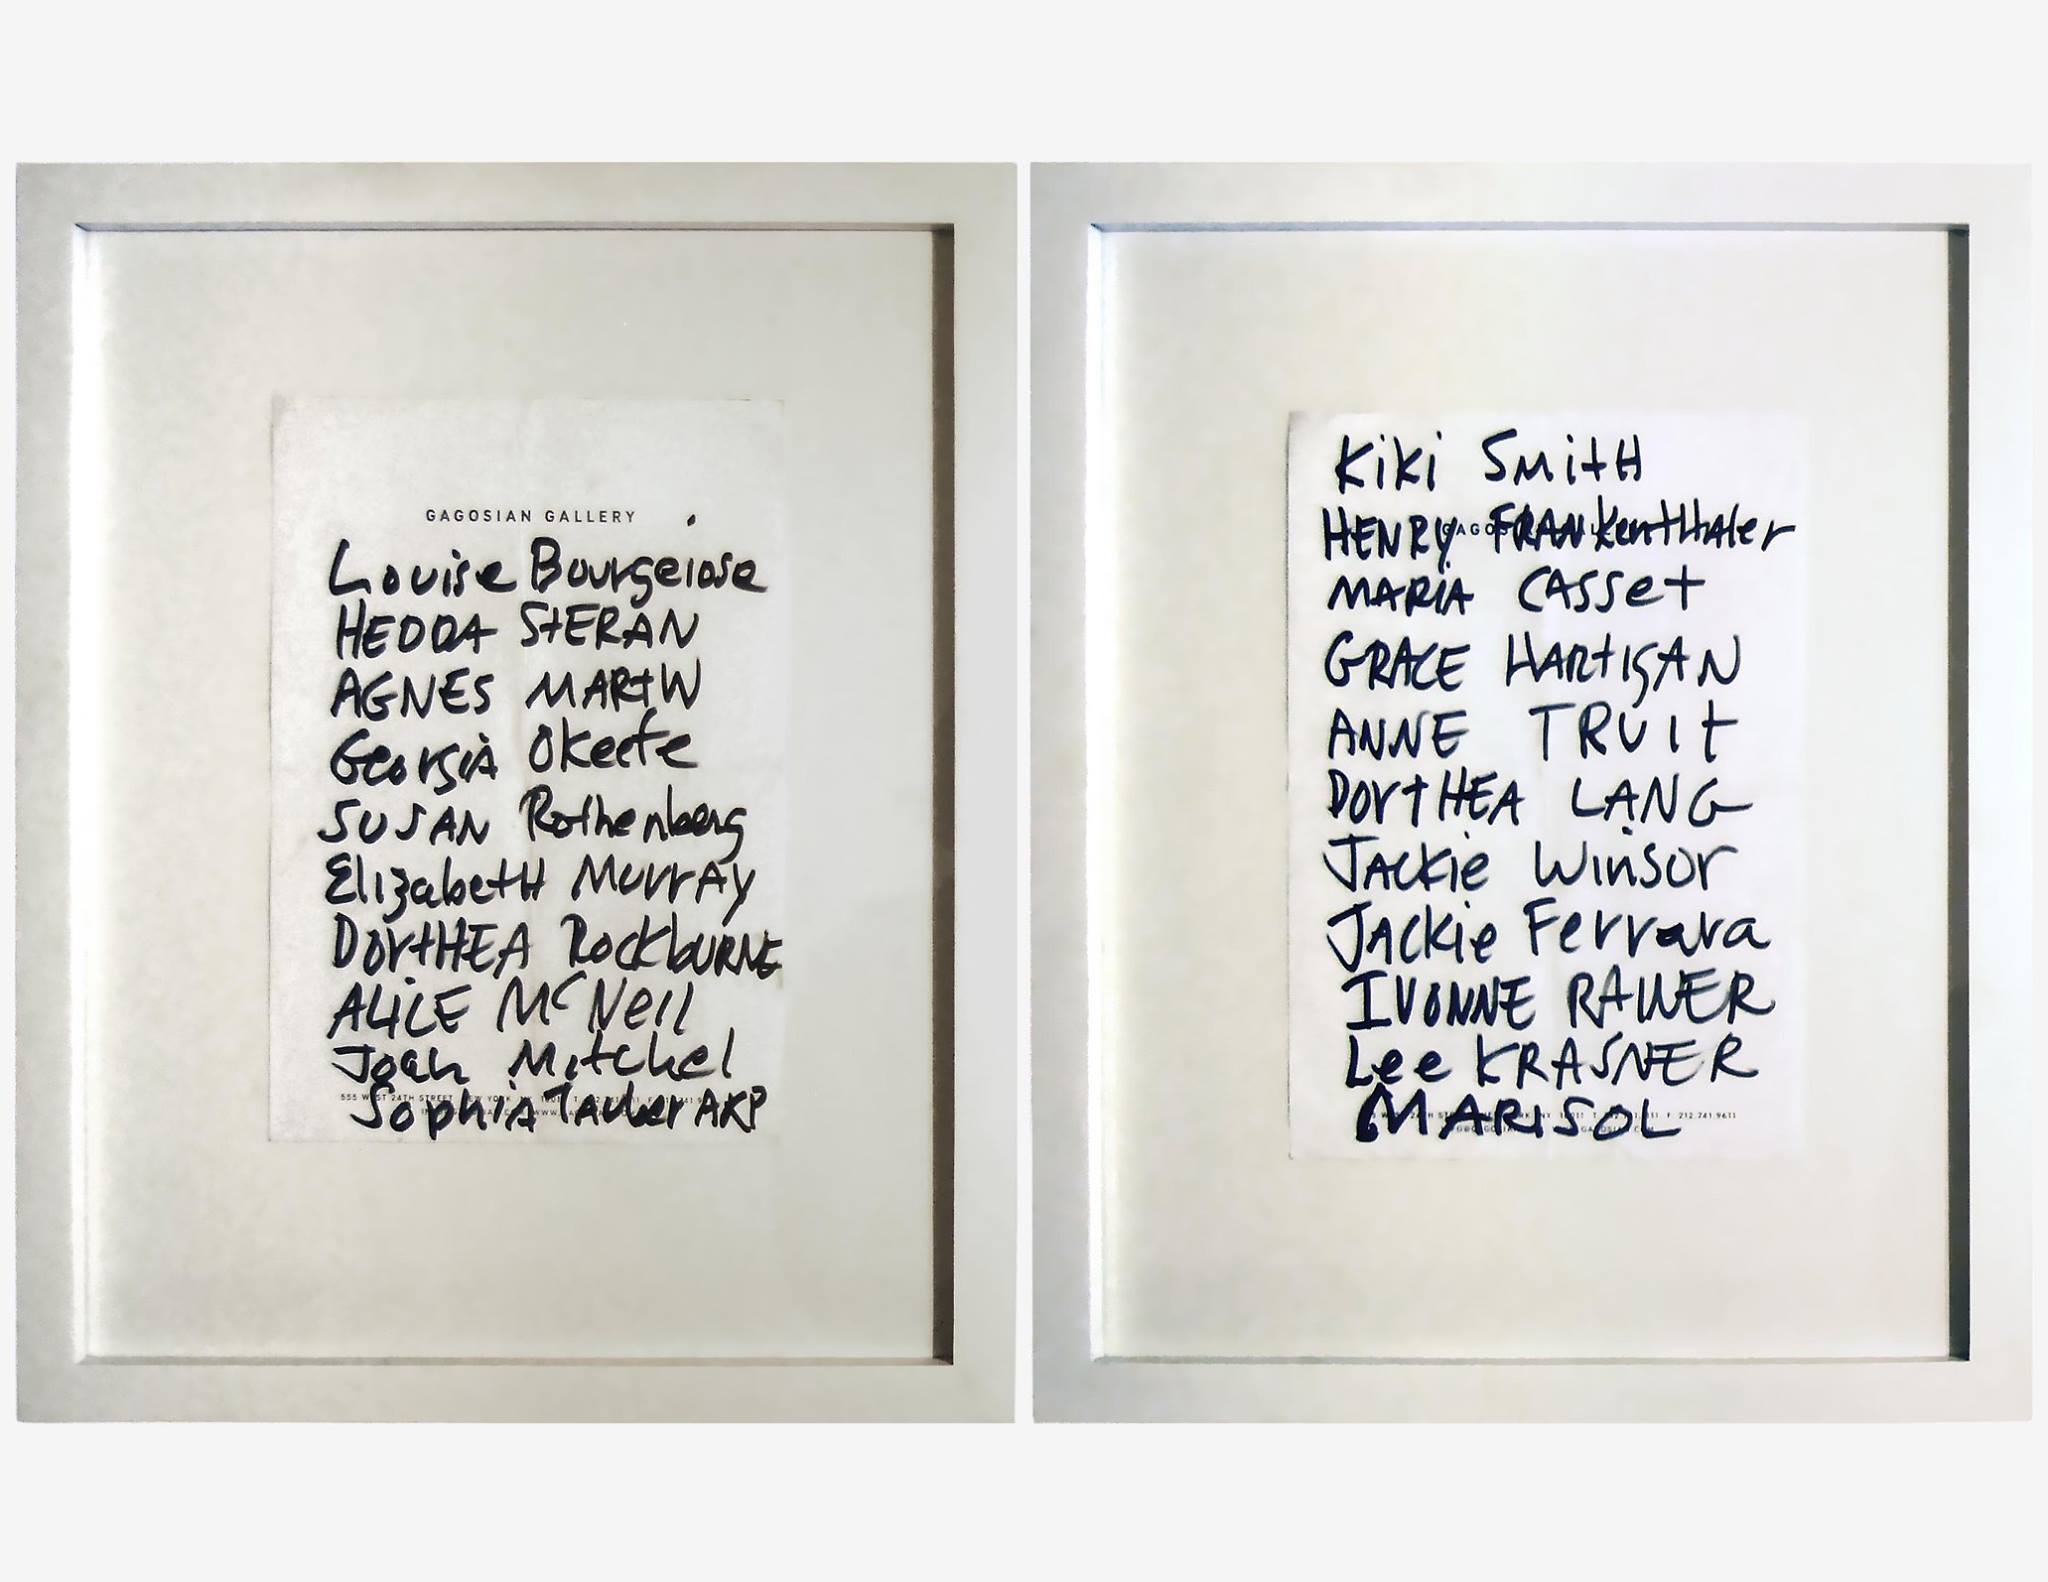 GAGOSIAN GALLERY
Louise Bourgeiose
HEDDA STERAN
AGNES MARTIN
Georgia OKeefe
SUSAN Rothenberg
ElizabetH MurrAy
DortHEA RockbURNE
ALICE McNeil
Joan Mitchel
Sophia Tauber ARP
555 WEST 24TH STREET NEW YORK NY 10011
Kiki SmitH
HENRY FRANKentHaler
MARIA CASSet
GRACE HARtigAN
ANNE TRUIt
DortHEA LANG
JAckie Winsor
JAckie Ferrara
IVONNE RAINER
Lee KRASNER
MARISOL
NY 10011 F 212.741.9611